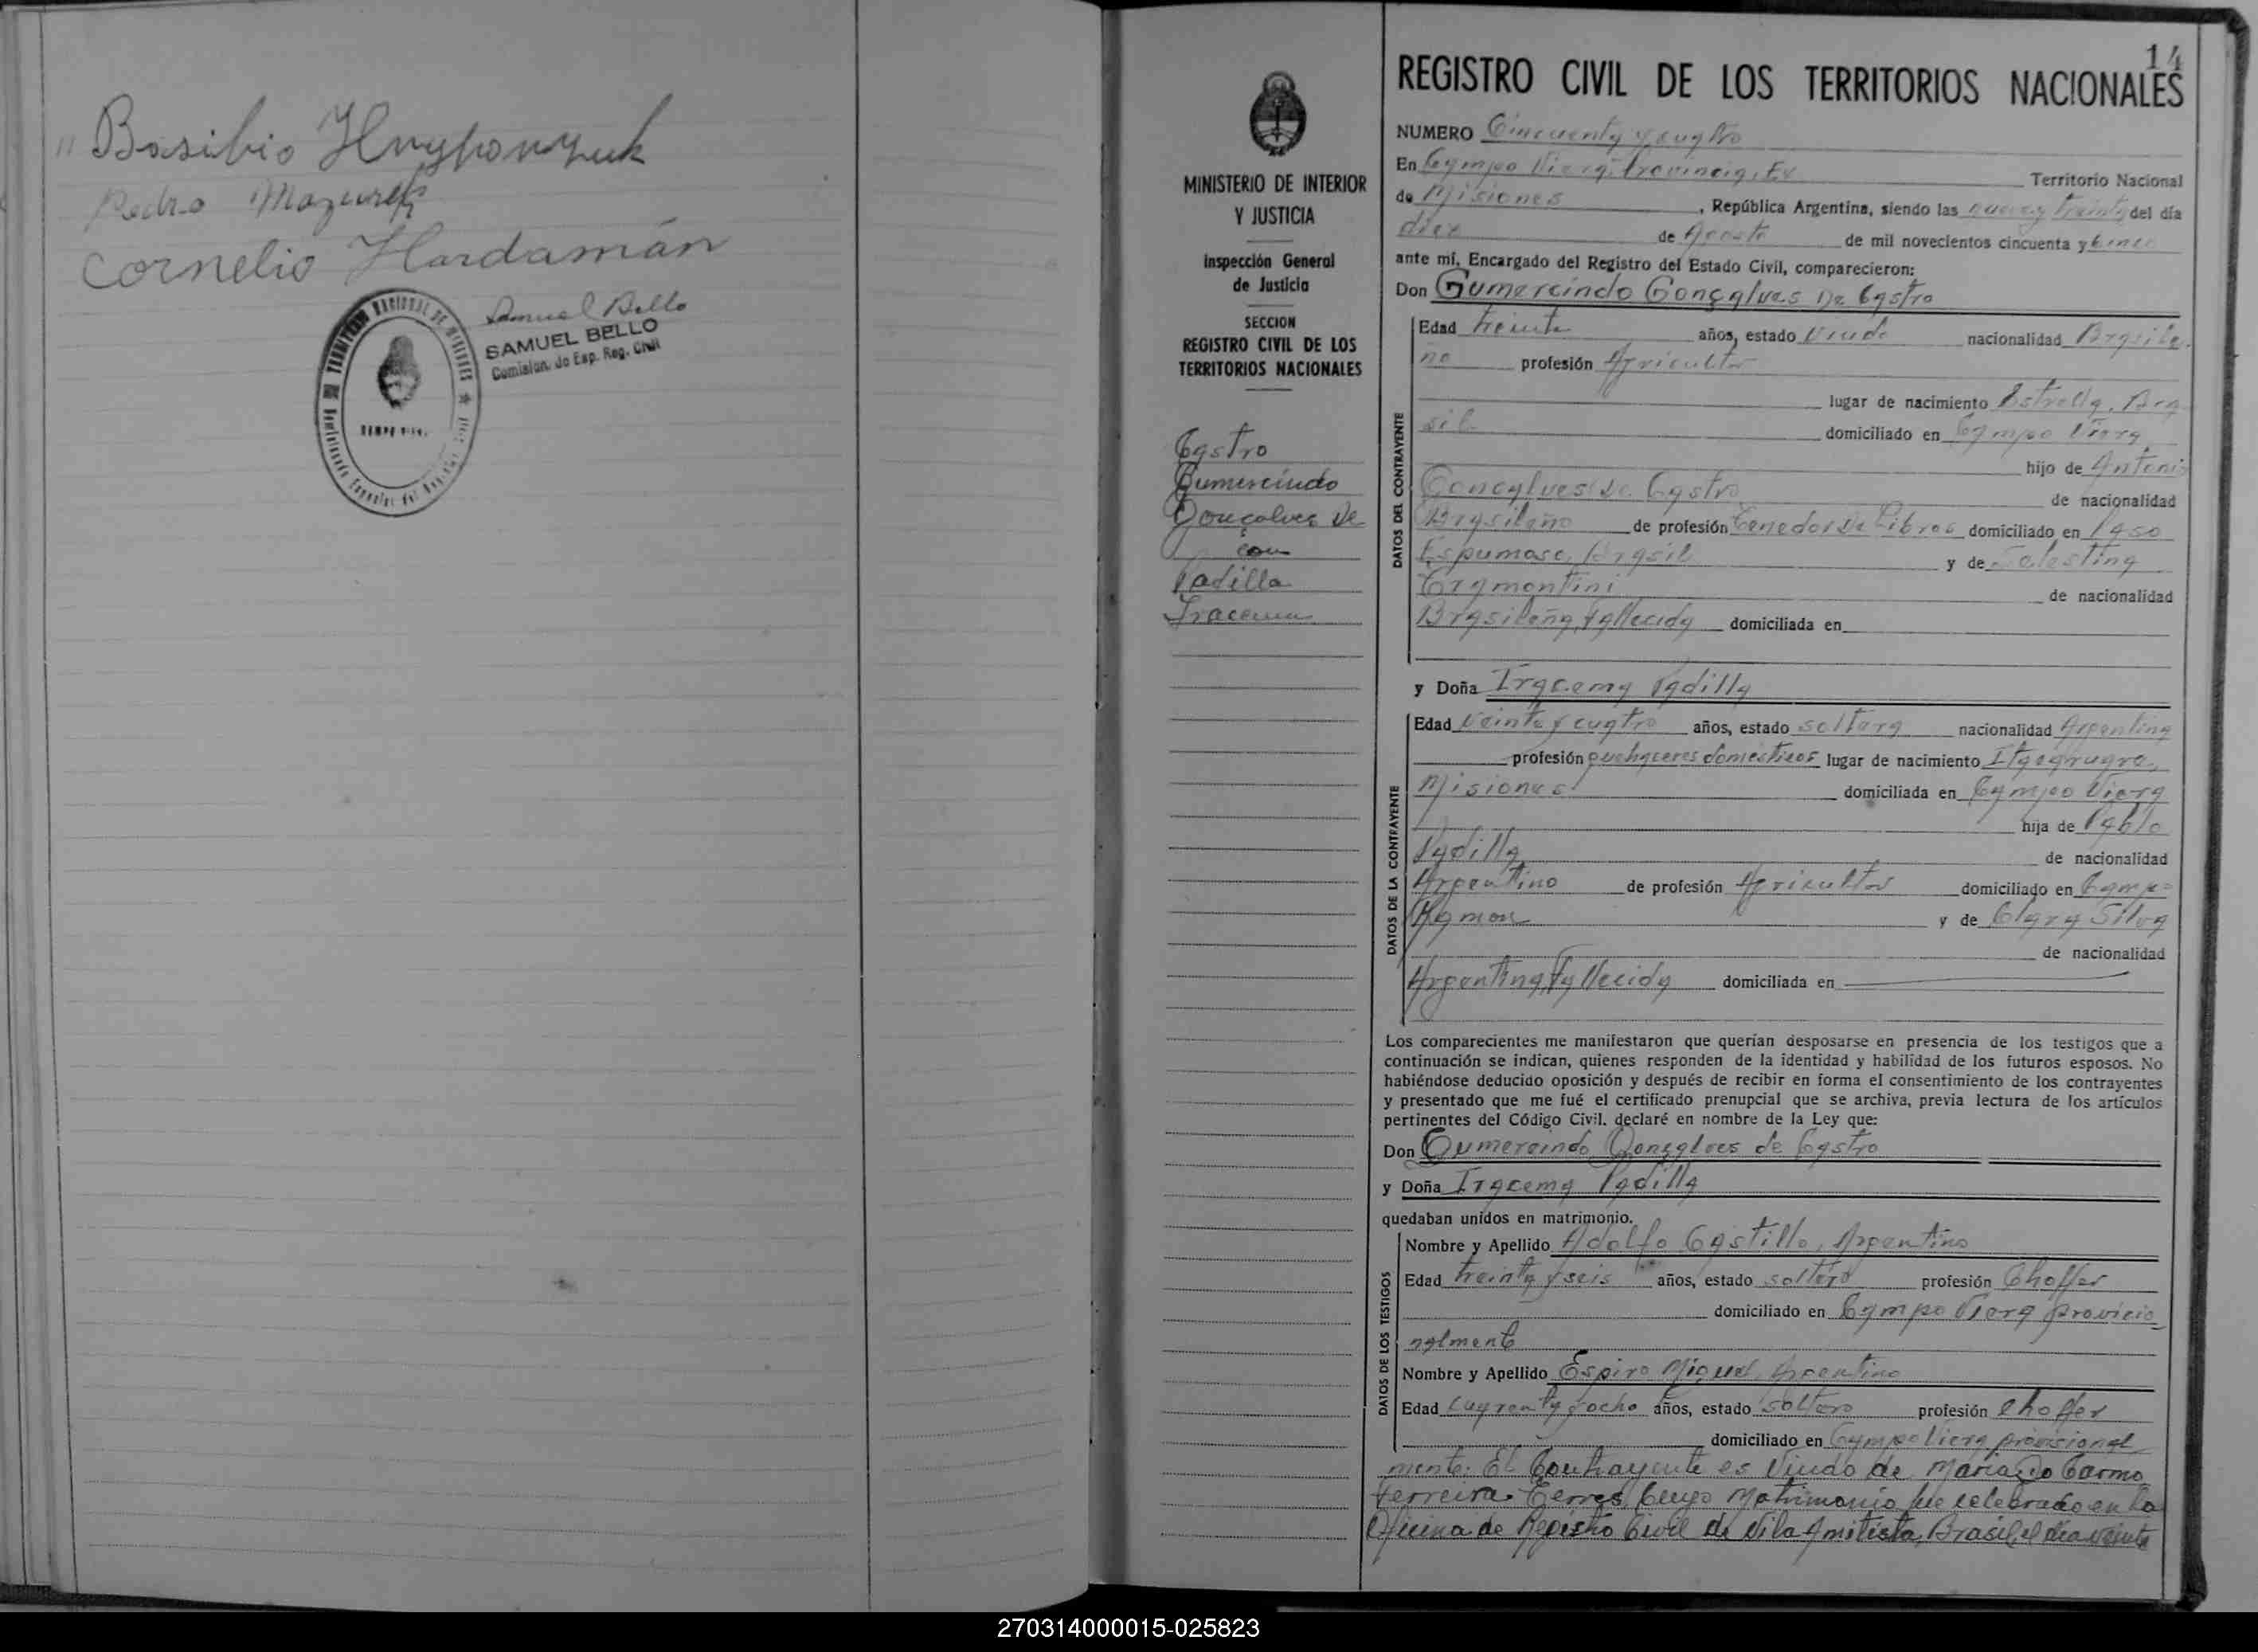 Basilio
Pedro Mazurek
Cornelio Hardamán
TERRITORIO NACIONAL DE MISIONES
CAMPO VIERA
Samuel Bello
SAMUEL BELLO
Comision. de Esp. Reg. Civil
14
MINISTERIO DE INTERIOR
Y JUSTICIA
Inspección General
de Justicia
SECCION
REGISTRO CIVIL DE LOS
TERRITORIOS NACIONALES
Castro
Gumercindo
Gonçalves De
con
Padilla
Iracema
REGISTRO CIVIL DE LOS TERRITORIOS NACIONALES
NUMERO Cincuenta y cuatro
En Campo Viera, Provincia, Ex Territorio Nacional
de Misiones, República Argentina, siendo las nueve y treinta del día
diez de Agosto de mil novecientos cincuenta y cinco
ante mí, Encargado del Registro del Estado Civil, comparecieron:
Don Gumercindo Gonçalves De Castro
DATOS DEL CONTRAYENTE
Edad treinta años, estado Viudo nacionalidad Brasile-
no profesión Agricultor
lugar de nacimiento Estrella, Bra
sil domiciliado en Campo Viera
hijo de Antonio
Gonçalves De Castro de nacionalidad
Brasileño de profesión Tenedor De Libros domiciliado en Paso
Espumoso, Brasil y de Celestina
Cramontini de nacionalidad
Brasileña, Fallecida domiciliada en
y Doña Iracema Padilla
DATOS DE LA CONTRAYENTE
Edad Veinte y cuatro años, estado soltera nacionalidad Argentina
profesión quehaceres domesticos lugar de nacimiento Itacaruare,
Misiones domiciliada en Campo Viera
hija de Pablo
Padilla de nacionalidad
Argentino de profesión Agricultor domiciliado en Campo
Ramon y de Clara Silva
de nacionalidad
Argentina, Fallecida domiciliada en
Los comparecientes me manifestaron que querían desposarse en presencia de los testigos que a
continuación se indican, quienes responden de la identidad y habilidad de los futuros esposos. No
habiéndose deducido oposición y después de recibir en forma el consentimiento de los contrayentes
y presentado que me fué el certificado prenupcial que se archiva, previa lectura de los artículos
pertinentes del Código Civil, declaré en nombre de la Ley que:
Don Gumercindo Gonçalves de Castro
y Doña Iracema Padilla
quedaban unidos en matrimonio.
DATOS DE LOS TESTIGOS
Nombre y Apellido Adolfo Castillo, Argentino
Edad treinta y seis años, estado soltero profesión Choffer
domiciliado en Campo Viera provicio
nalmente
Nombre y Apellido Espiro Miguel, Argentino
Edad cuarenta y ocho años, estado soltero profesión choffer
domiciliado en Campo Viera provisional
mente. El Contrayente es Viudo de Maria Do Carmo
Ferreira Cuyo Matrimonio fue celebrado en la
Oficina de Registro Civil de Vila Amitista, Brasil, el dia veinte
270314000015-025823